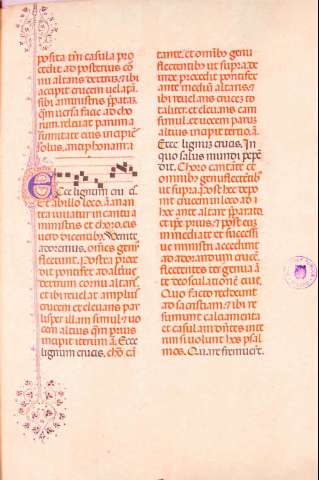 posita tm casula pro
cedit ad posterius cor
nu altaris dexterū. et ibi
accipit crucem uelatā.
sibi a ministris p̄paratā.
quā uersa facie ad cho
rum. reuelat parum a
sumitate eius incipiēs
solus. antiphonam. a
Ecce lignum cru c.
Et ab illo loco. a. man
ta iuuatur in cantu a
ministris et choro. cis
uero dicentibꝰ. Uenite
adoremus. omēs genu
flectunt. postea proce
dit pontifex ad altius
dextrum cornu altaris.
et ibi reuelat amplius
crucem et eleuans par
lisper illam simul et uo
cem altius qm prius
incipit iterum. a. Ecce
lignum crucis. choro cā
tante. et omibꝰ genu
flectentibꝰ ut supra. de
inde procedit pontifex
ante mediū altaris. et
ibi reuelans crucē to
taliter. et eleuans eam
simul. et uocem parum
altius incipit tertio. a.
Ecce lignum crucis. In
quo salus mundi pepē
dit. Choro cantāte et
omibꝰ genuflectentibꝰ
ut supra. Post hec depo
nit crucem in loco ad h
hoc ante altare p̄parato
et ip̄e prius. et post eum
inmediate et successi
ue ministri accedunt
ad adorandum crucē.
flectentes ter genua añ
te deosculationē eius.
Quo facto redeunt
ad sacristiam. et ibi re
sumunt calciamenta
et casulam. dn̄tes inte
rim si uolunt hos psal
mos. Quare fremuerūt.